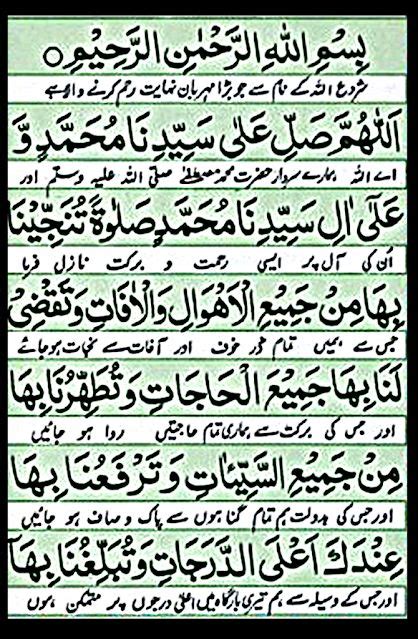 بِسْمِ اللهِ الرَّحْمٰنِ الرَّحِيْمِ ○
شروع اللہ کے نام سے جو بڑا مہربان نہایت رحم کرنے والا ہے
اَللّٰهُمَّ صَلِّ عَلٰى سَيِّدِنَا مُحَمَّدٍ وَّ
اے اللہ ہمارے سردار حضرت محمد مصطفےٰ صلی اللہ علیہ وسلم اور
عَلٰٓى اٰلِ سَيِّدِنَا مُحَمَّدٍ صَلٰوةً تُنَجِّيْنَا
اُن کی آل پر ایسی رحمت و برکت نازل فرما
بِهَا مِنْ جَمِيْعِ الْاَهْوَالِ وَالْاٰفَاتِ وَتَقْضِىْ
جس سے ہمیں تمام ڈر خوف اور آفات سے نجات ہوجائے
لَنَا بِهَا جَمِيْعَ الْحَاجَاتِ وَتُطَهِّرُنَا بِهَا
اور جس کی برکت سے ہماری تمام حاجتیں روا ہو جائیں
مِنْ جَمِيْعِ السَّيِّاٰتِ وَتَرْفَعُنَا بِهَا
اور جس کی بدولت ہم تمام گناہوں سے پاک و صاف ہو جائیں
عِنْدَكَ اَعْلَى الدَّرَجَاتِ وَتُبَلِّغُنَا بِهَآ
اور جس کے وسیلہ سے ہم تیری بارگاہ میں اعلیٰ درجوں پر متمکن ہوں